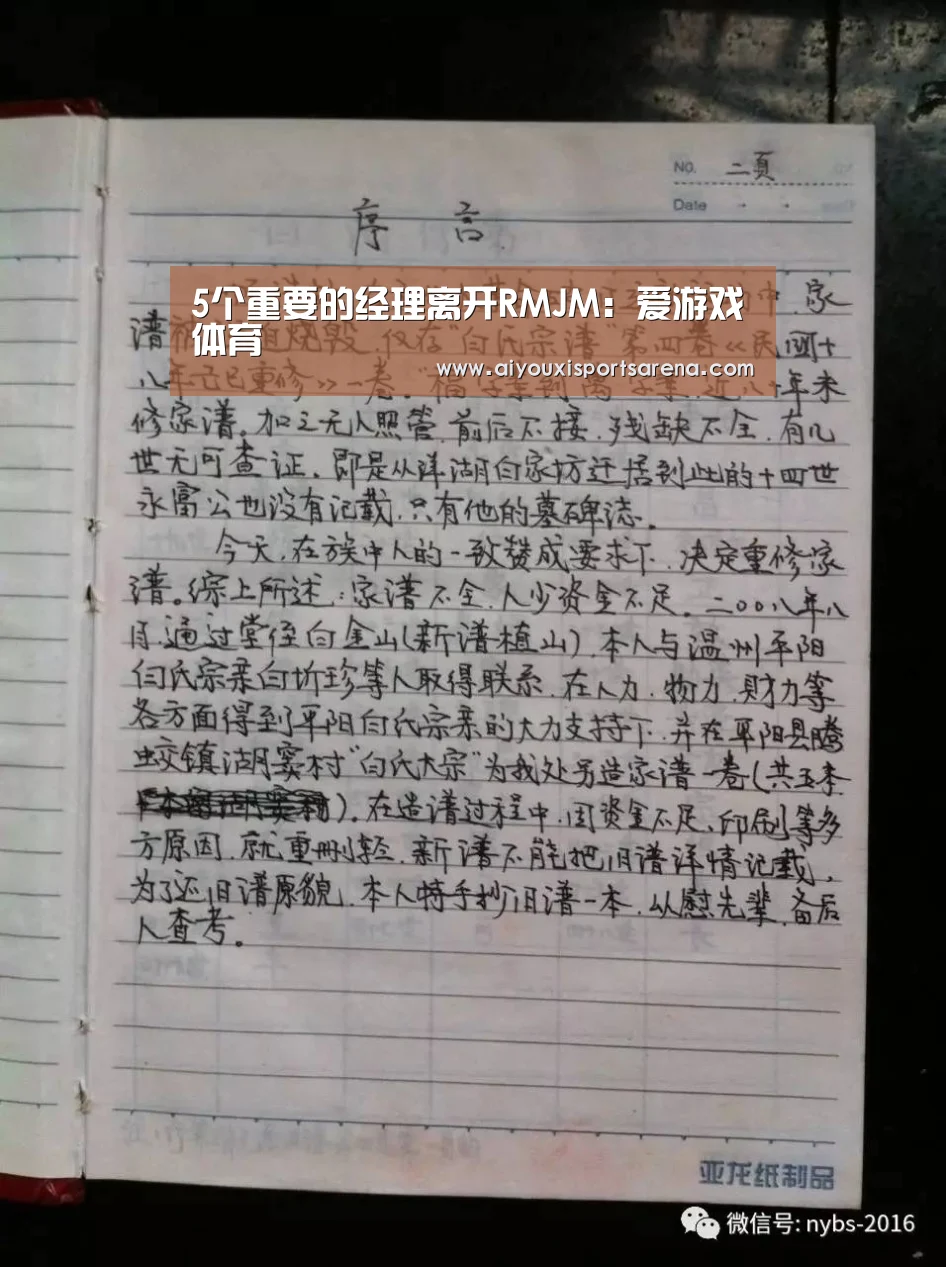 No. 二頁
Date
序 言
5个重要的经理离开RMJM：爱游戏
体育
www.aiyouxisportsarena.com
中，家
谱被 烧毁，仅存“白氏宗谱”第四卷《民国十
八年己巳重修》一卷。“福字
年未
修家谱。加之无人照管，前后不接，残缺不全，有几
世无可查证，即是从洋湖白家坊迁居到此的十四世
永富公也没有记载，只有他的墓碑志。
今天，在族中人的一致赞成要求下，决定重修家
谱。综上所述：家谱不全，人少资金不足。二00八年八
月通过堂侄白金山（新谱植山）本人与温州平阳
白氏宗亲白圻珍等人取得联系，在人力，物力，财力等
各方面得到平阳白氏宗亲的大力支持下，并在平阳县腾
蛟镇湖窦村“白氏大宗”为我处另造家谱一卷（共五本
）。在造谱过程中，因资金不足、印刷等多
方原因，就重删轻，新谱不能把旧谱详情记载，
为了还旧谱原貌，本人特手抄旧谱一本，以慰先辈，备后
人查考。
亚龙纸制品
微信号: nybs-2016